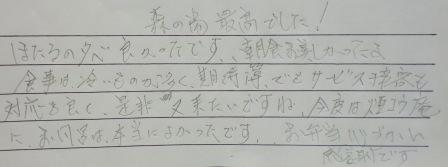 森の湯 最高でした!
ほたるの夕べ 良かったです。朝食お美しかったよ
食事は、冷いものが多く、期待薄、でもサービス接客も
対応も良く、是非又来たいですね、今度は煙
に、お 本当によかったです。お弁当
です